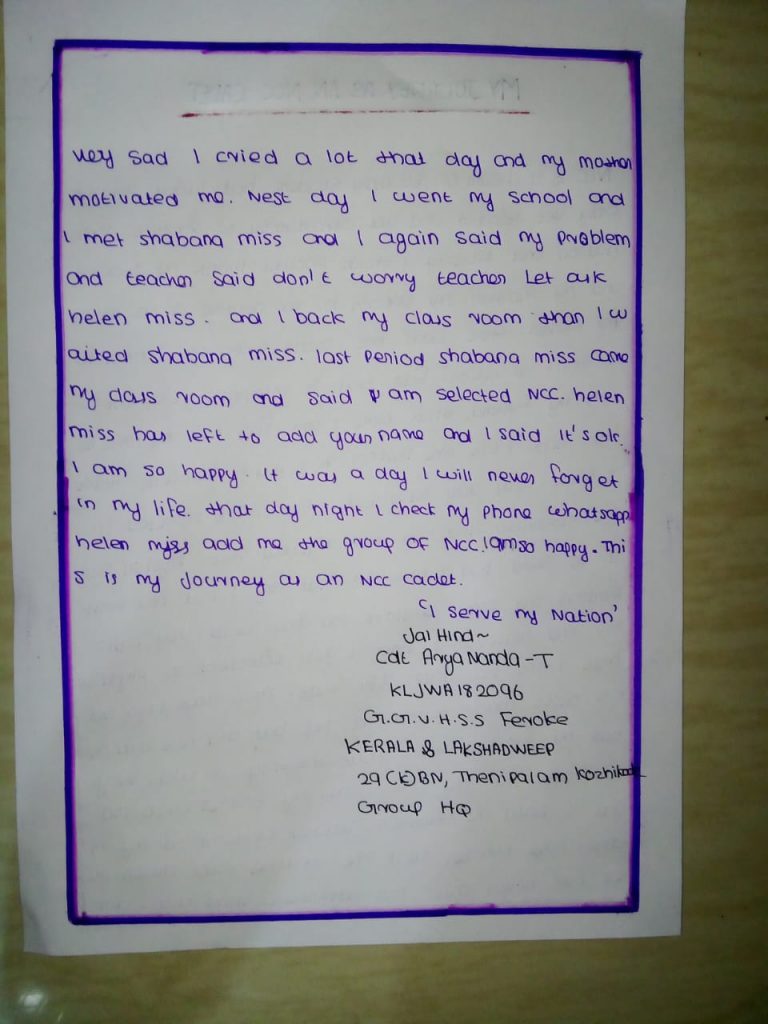 MY JOURNEY AS AN NCC CADET
very sad I cried a lot that day and my mother
motivated me. Nest day I went my school and
I met shabana miss and I again said my problem
and teacher said don't worry teacher Let ask
helen miss. and I back my class room than I w
aited shabana miss. last period shabana miss came
my class room and said I am selected NCC. helen
miss has left to add your name and I said it's ok.
I am so happy. It was a day I will never forget
in my life. that day night I check my phone whatsapp
helen miss add me the group of NCC. I am so happy. Thi
s is my Journey as an NCC cadet.
'I serve my Nation'
Jai Hind~
Cdt Arya Nanda-T
KLJWA182096
G.G.V.H.S.S Feroke
KERALA & LAKSHADWEEP
29 (K) BN, Thenipalam Kozhikode
Group HQ